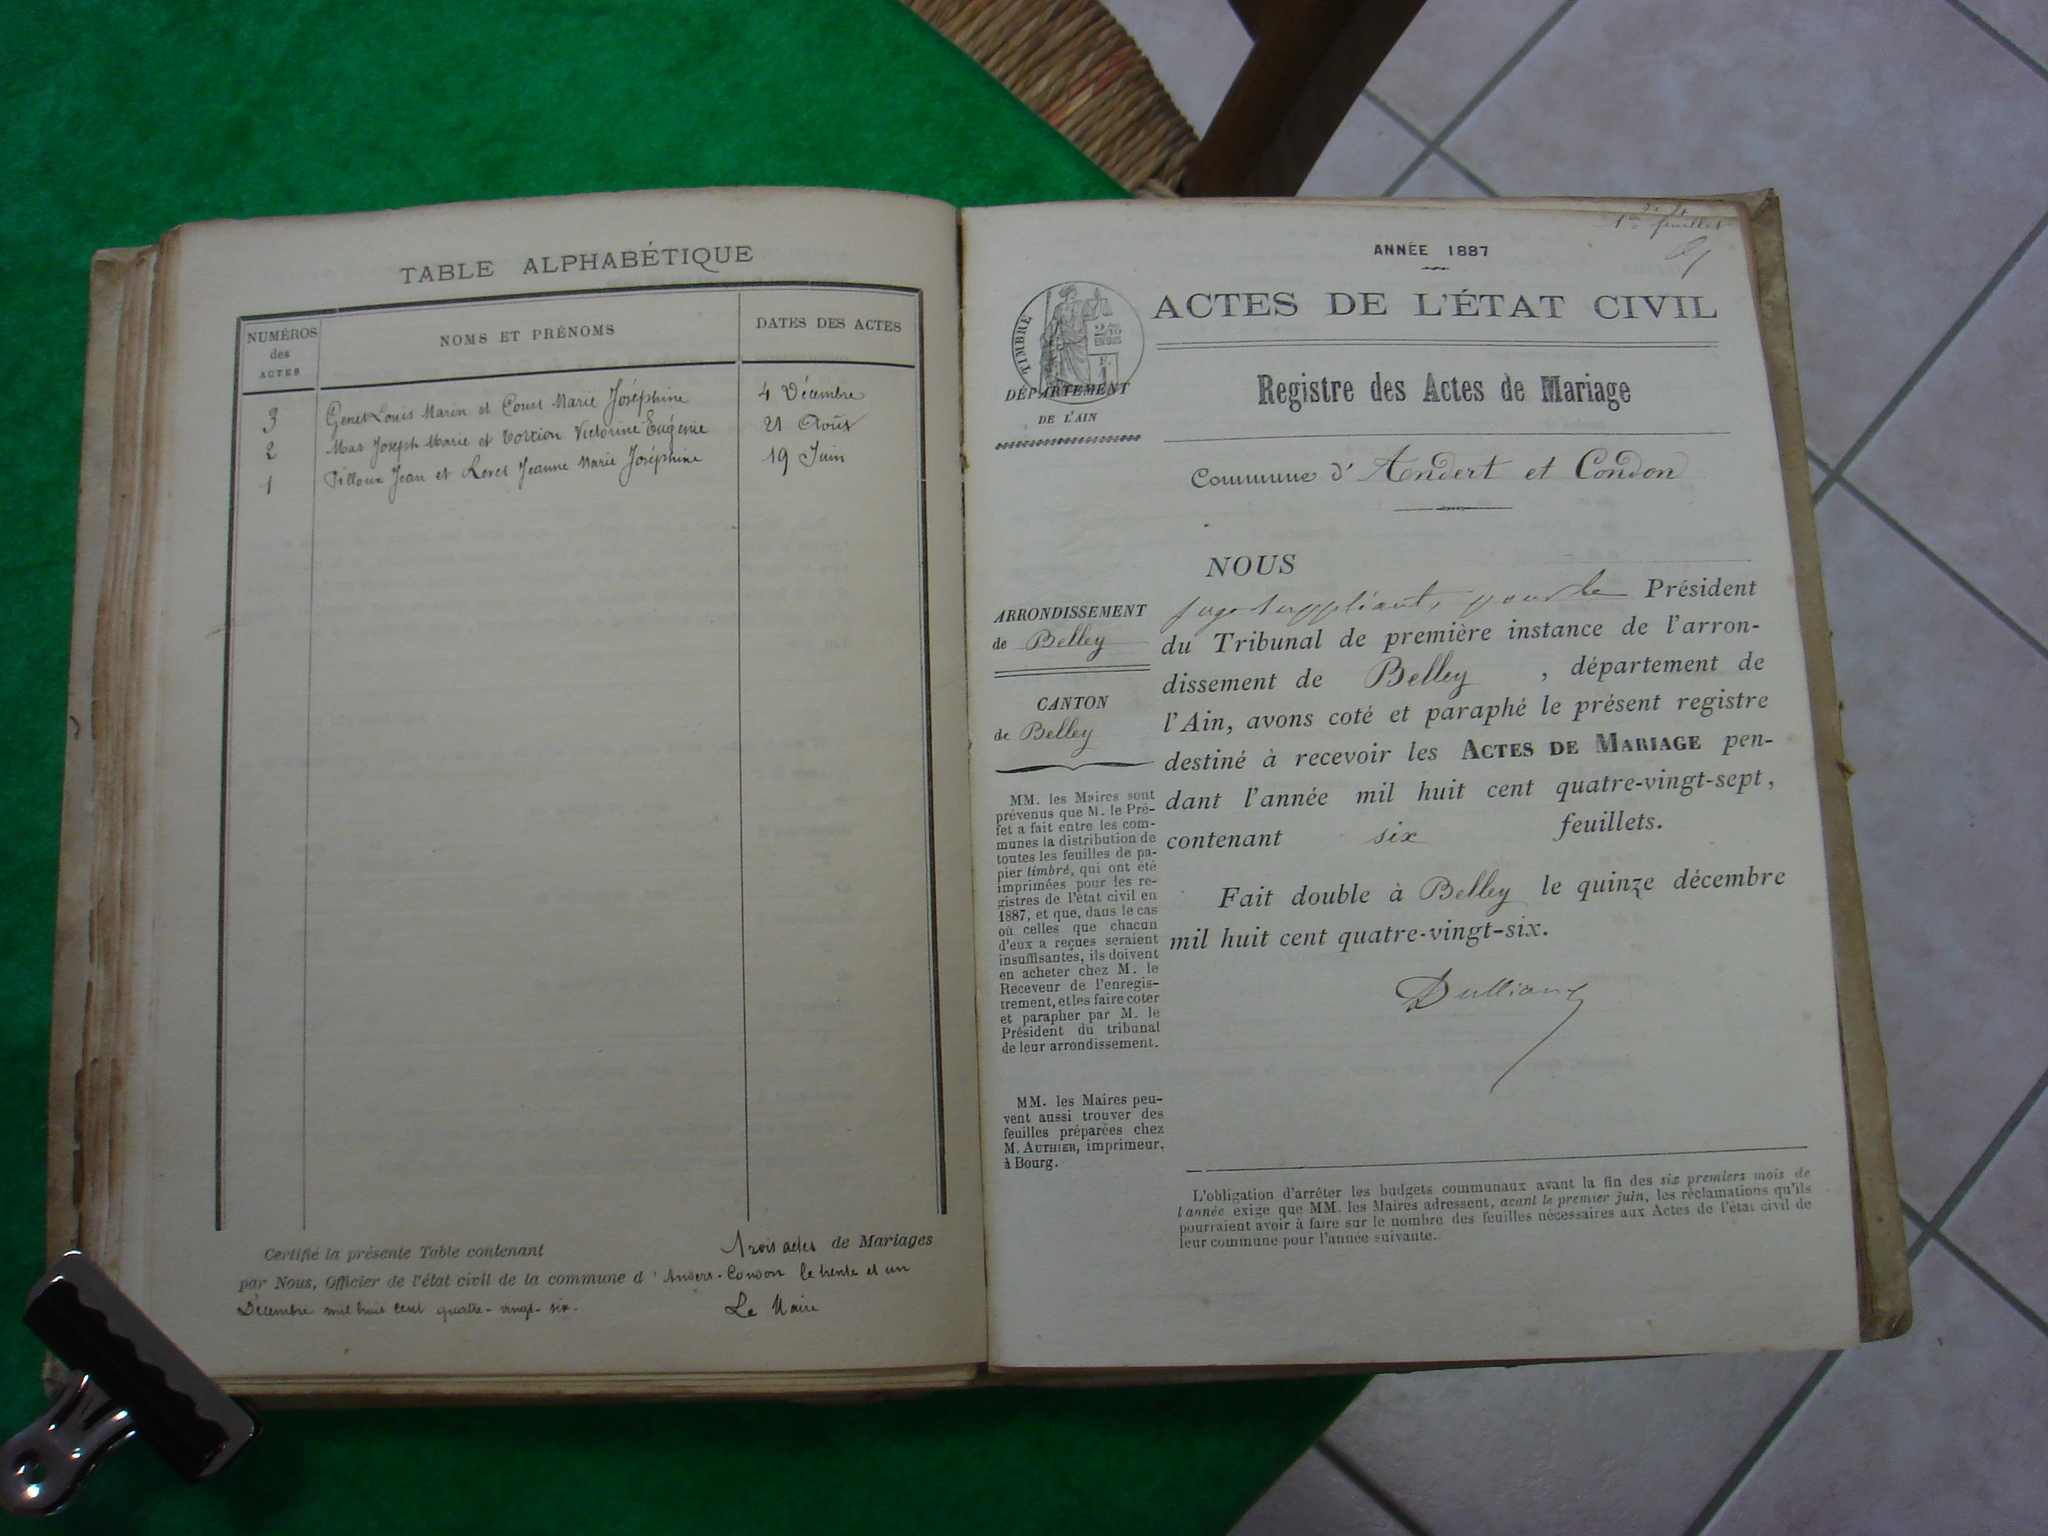 TABLE ALPHABÉTIQUE
NUMÉROS des ACTES
NOMS ET PRÉNOMS
DATES DES ACTES
3 Genet Louis Marin et Court Marie Joséphine 4 Décembre
2 Mas Joseph Marie et Victorine Eugénie 21 Août
1 Pilloux Jean et Jeanne Marie Joséphine 19 Juin
Certifié la présente Table contenant trois actes de Mariages
par Nous, Officier de l'état civil de la commune d'Andert-Condon le trente et un
Décembre mil huit cent quatre-vingt-six.
Le Maire
1er feuillet
ANNÉE 1887
ACTES DE L'ÉTAT CIVIL
TIMBRE
2/10
EN SUS
DÉPARTEMENT
DE L'AIN
Registre des Actes de Mariage
Commune d'Andert et Condon
ARRONDISSEMENT
de Belley
CANTON
de Belley
MM. les Maires sont
prévenus que M. le Pré-
fet a fait entre les com-
munes la distribution de
toutes les feuilles de pa-
pier timbré, qui ont été
imprimées pour les re-
gistres de l'état civil en
1887, et que, dans le cas
où celles que chacun
d'eux a reçues seraient
insuffisantes, ils doivent
en acheter chez M. le
Receveur de l'enregis-
trement, et les faire coter
et parapher par M. le
Président du tribunal
de leur arrondissement.
MM. les Maires peu-
vent aussi trouver des
feuilles préparées chez
M. AUTHIER, imprimeur,
à Bourg.
NOUS
juge suppléant, pour le Président
du Tribunal de première instance de l'arron-
dissement de Belley, département de
l'Ain, avons coté et paraphé le présent registre
destiné à recevoir les ACTES DE MARIAGE pen-
dant l'année mil huit cent quatre-vingt-sept,
contenant six feuillets.
Fait double à Belley le quinze décembre
mil huit cent quatre-vingt-six.
L'obligation d'arrêter les budgets communaux avant la fin des six premiers mois de
l'année exige que MM. les Maires adressent, avant le premier juin, les réclamations qu'ils
pourraient avoir à faire sur le nombre des feuilles nécessaires aux Actes de l'état civil de
leur commune pour l'année suivante.